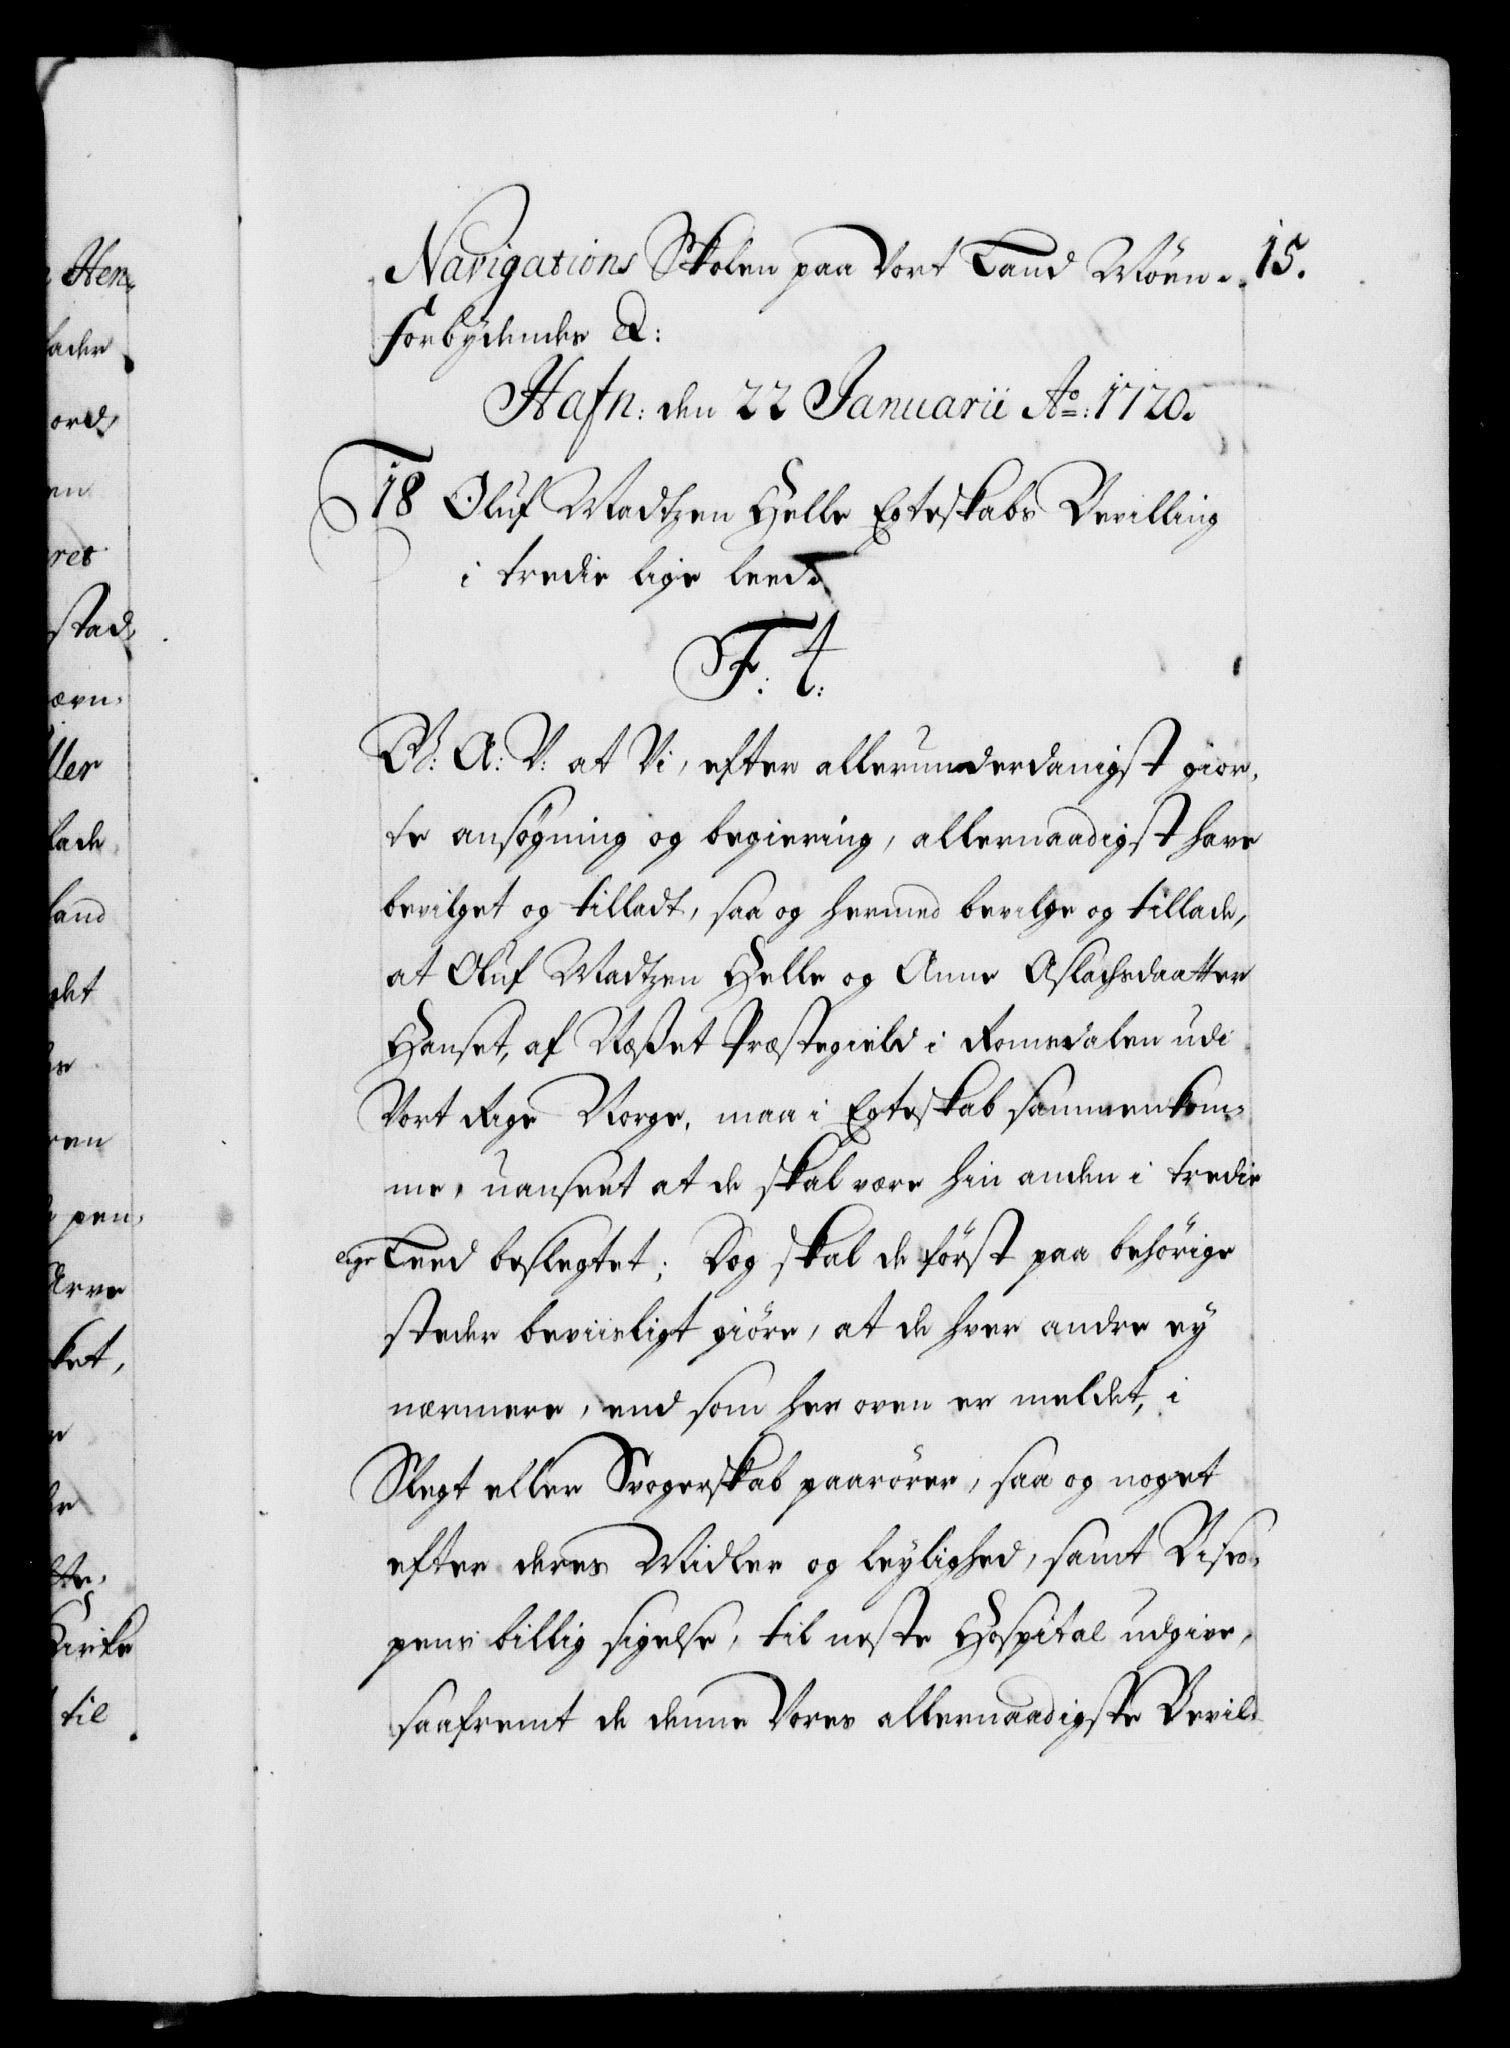 Navigations Skolen paa Vort Land Möen. 15.
forbydendes &:
Hafn: den 22 Januarii Ao: 1720.
18 Oluf Madtzen Helle Egteskabs Bevilling
i tredie lige leed.
F. 4.
G: A: V: at Vi, efter allerunderdanigst gior,
te ansögning og begiering, allernaadigst have
bevilget og tilladt, saa og hermed bevilge og tillade,
at Oluf Madtzen Helle og Anne Aslachsdaatter
Hanset, af Næsset Præstegield i Romsdalen udi
Vort Rige Norge, maa i Egteskab sammenkom,
me, uanseet at de skal være hin anden i tredie
lige Leed beslegtet; Dog skal de först paa behörige
steder beviisligt giöre, at de hver andre ey
nærmere, end som her oven er meldet, i
Slegt eller Svogerskab paarörer, saa og noget
efter deres Midler og leylighed, samt Bisco,
pens billig sigelse, til neste Hospital udgive,
saafremt de denne Vores allernaadigste Bevil,
n Hen,
lader
ord,
en
ret
stad,
ævn,
ller
lade
land
det
ren
pen,
Arve
ket,
Kirke
til